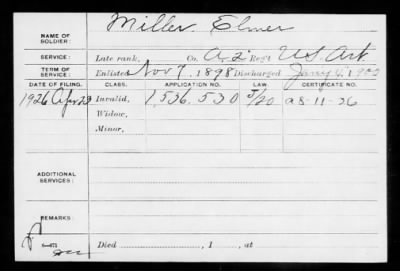 NAME OF SOLDIER: Miller, Elmer
SERVICE: Late rank, Co. A, 2 Reg't U.S. Art
TERM OF SERVICE: Enlisted Nov 7, 1898 Discharged Jany 4, 1900
DATE OF FILING. CLASS. APPLICATION NO. LAW. CERTIFICATE NO.
1926 Apr 23 Invalid, 1,536,530 5/20 a8-11-26
Widow,
Minor,
ADDITIONAL SERVICES:
REMARKS:
Died , 1 , at